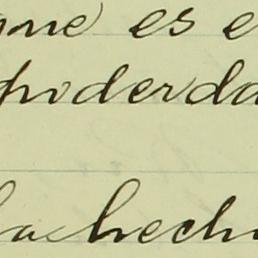 que es e
poderda
la hech